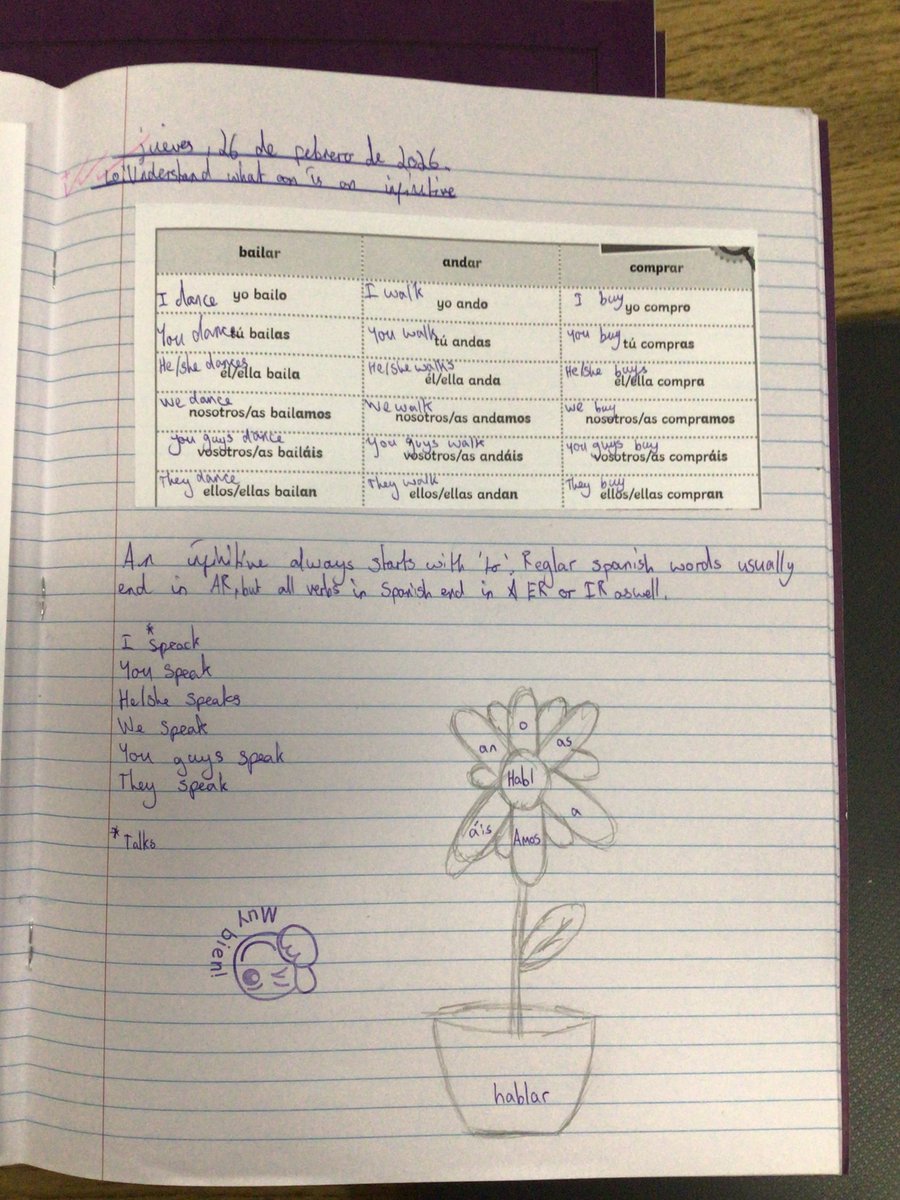 jueves, 26 de febrero de 2026.
LO: Understand what an is an infinitive
bailar andar comprar
I dance yo bailo I walk yo ando I buy yo compro
You dance tú bailas You walk tú andas You buy tú compras
He/she dances él/ella baila He/she walks él/ella anda He/she buys él/ella compra
We dance nosotros/as bailamos We walk nosotros/as andamos We buy nosotros/as compramos
You guys dance vosotros/as bailáis You guys walk vosotros/as andáis You guys buy vosotros/as compráis
They dance ellos/ellas bailan They walk ellos/ellas andan They buy ellos/ellas compran
An infinitive always starts with 'to'. Reglar spanish words usually
end in AR, but all verbs in Spanish end in ER or IR aswell.
I *Speack
You speak
He/she speaks
We speak
You guys speak
They speak
*Talks
Muy bien!
o
an as
Habl
áis a
Amos
hablar